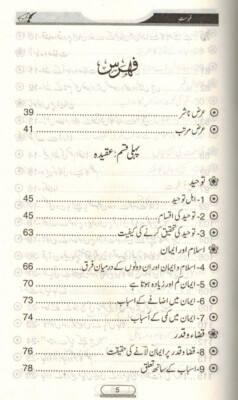 فہرست
فہرس
عرض ناشر ........ 39
عرض مرتب ........ 41
پہلی قسم: عقیدہ
توحید
1- اہل توحید ........ 45
2- توحید کی اقسام ........ 45
3- توحید کی تحقیق کرنے کی کیفیت ........ 63
اسلام اور ایمان
4- اسلام و ایمان اور ان دونوں کے درمیان فرق ........ 66
5- ایمان کم اور زیادہ ہوتا ہے ........ 70
6- ایمان میں اضافے کے اسباب ........ 73
7- ایمان میں کمی کے اسباب ........ 74
قضاء و قدر
8- قضاء و قدر پر ایمان لانے کی حقیقت ........ 76
9- اسباب کے ساتھ تعلق ........ 78
5